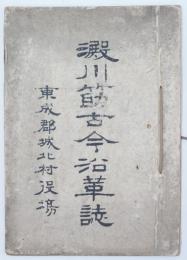 澱川筋古今沿革誌
東成郡城北村役場